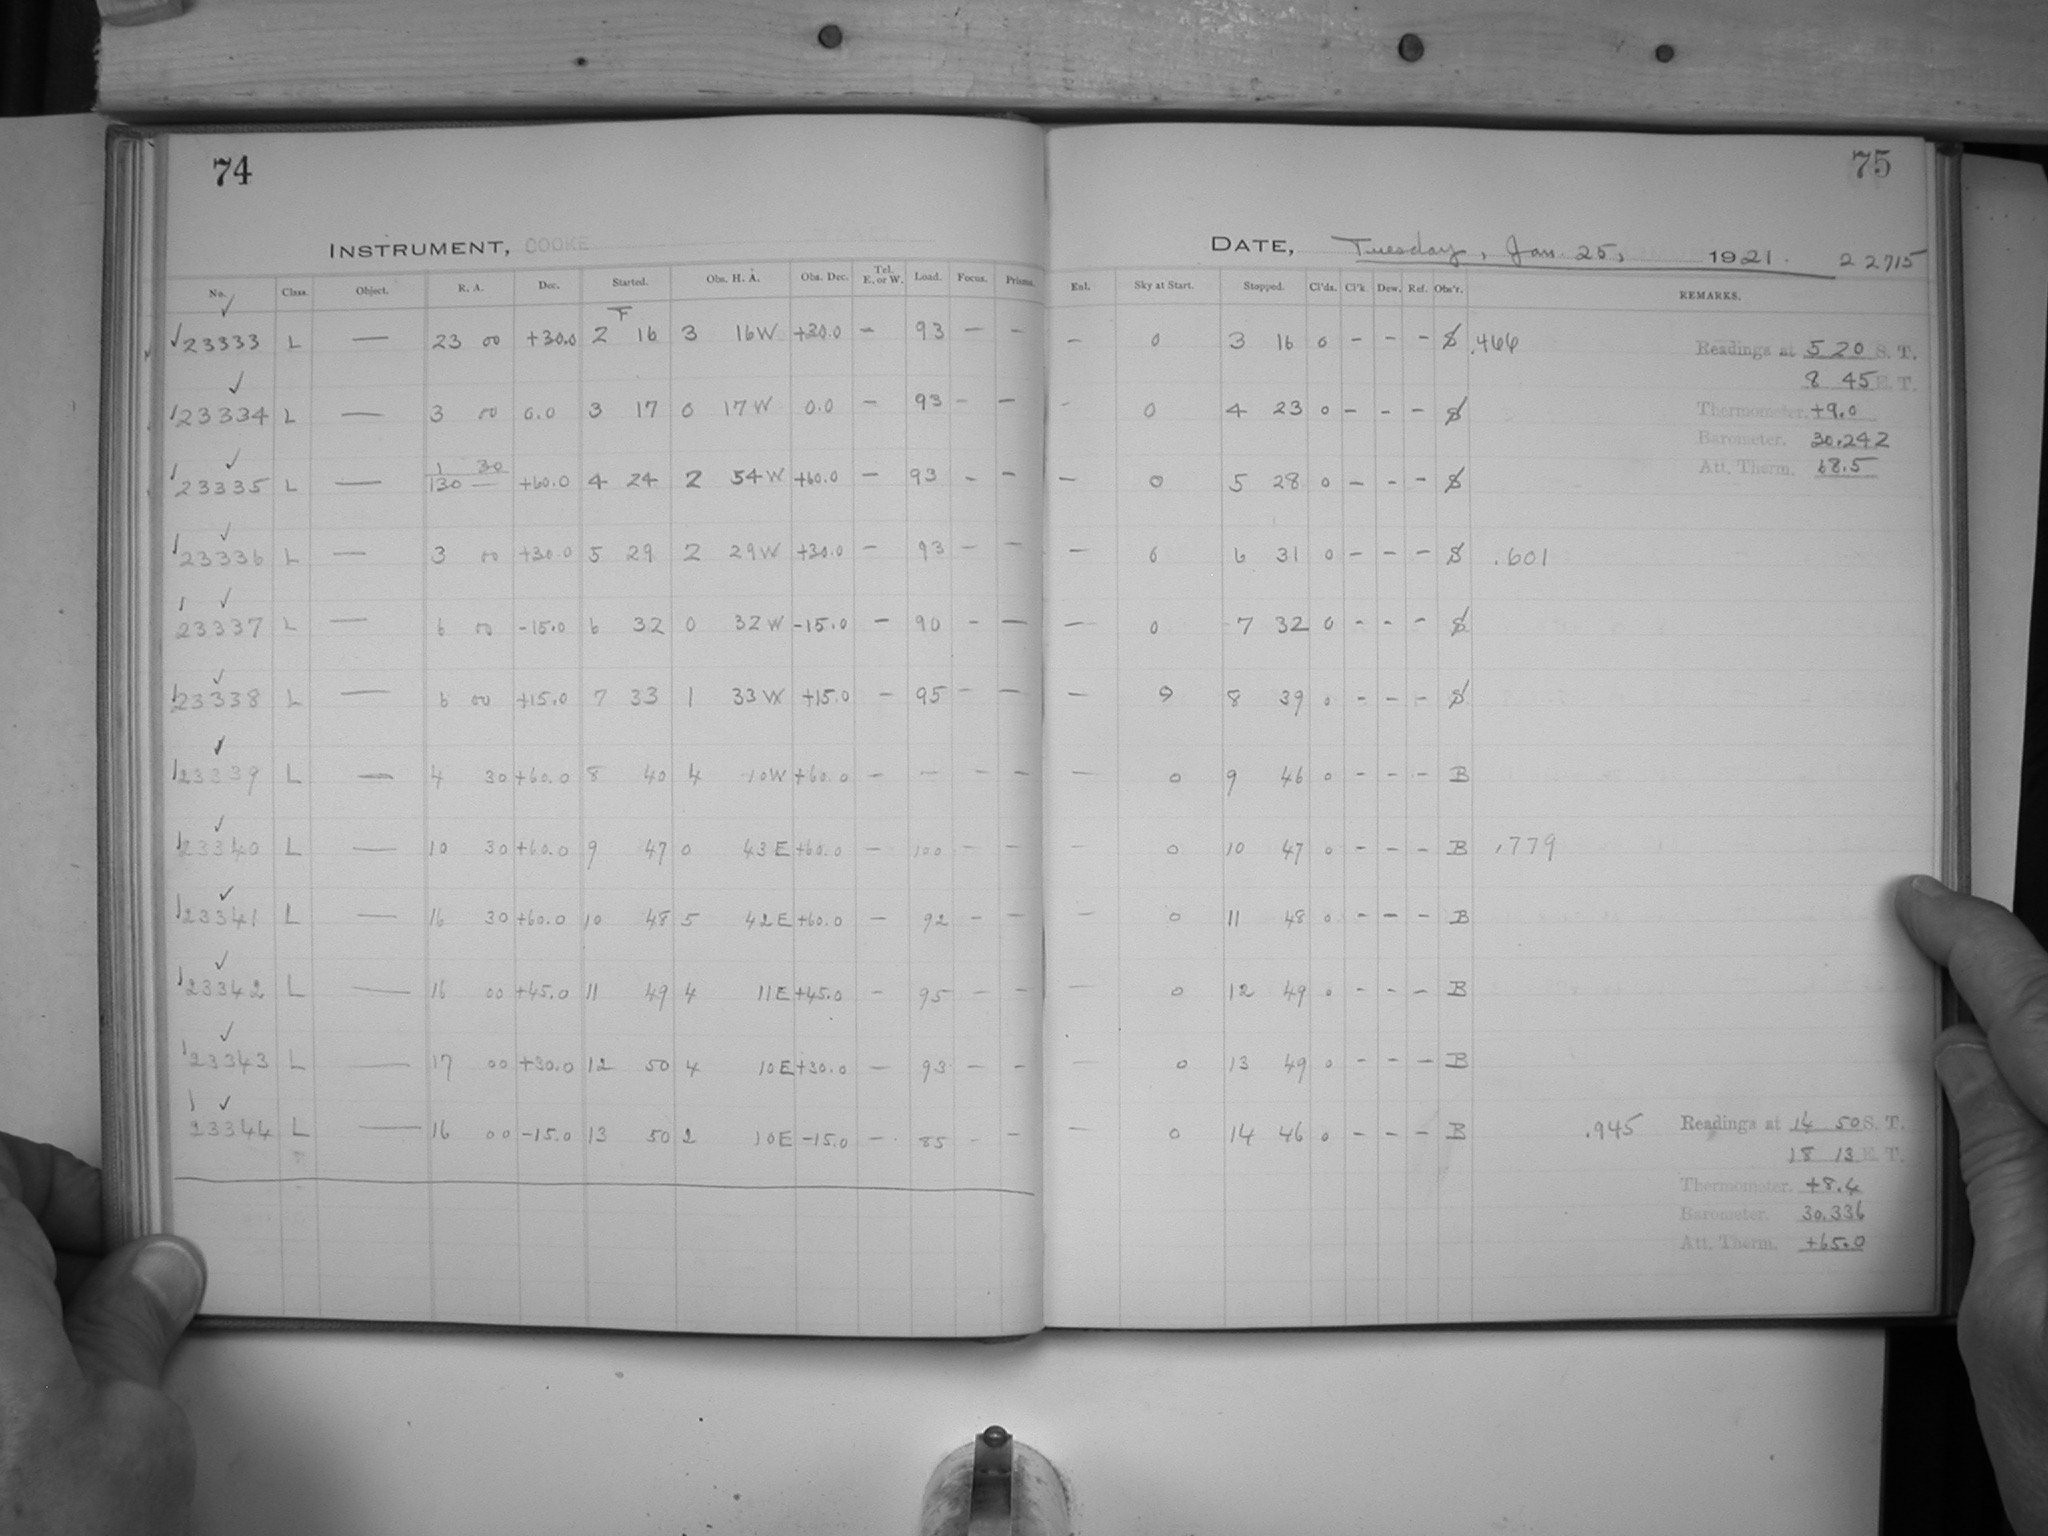 74
INSTRUMENT, COOKE
No. Class. Object. R. A. Dec. Started. Obs. H. A. Obs. Dec. Tel. E. or W. Load. Focus. Prisms.
23333 L — 23 00 +30.0 2 16 3 16W +30.0 — 93 — —
23334 L — 3 00 0.0 3 17 0 17W 0.0 — 93 — —
1 30
23335 L — 130 — +60.0 4 24 2 54W +60.0 — 93 - —
23336 L — 3 00 +30.0 5 29 2 29W +30.0 — 93 — —
23337 L — 6 00 -15.0 6 32 0 32W -15.0 — 90 - —
23338 L — 6 00 +15.0 7 33 1 33W +15.0 — 95 — —
23339 L — 4 30 +60.0 8 40 4 10W +60.0 — — — —
23340 L — 10 30 +60.0 9 47 0 43E +60.0 — 100 — —
23341 L — 16 30 +60.0 10 48 5 42E +60.0 — 92 - —
23342 L — 16 00 +45.0 11 49 4 11E +45.0 — 95 — —
23343 L — 17 00 +30.0 12 50 4 10E +30.0 — 93 — —
23344 L — 16 00 -15.0 13 50 2 10E -15.0 — 85 - —
75
DATE, Tuesday, Jan. 25, 1921. 22715
Enl. Sky at Start. Stopped. Cl'ds. Cl'k. Dew. Ref. Obs'r. REMARKS.
— 0 3 16 0 - - - S .466
Readings at 5 20 S. T.
8 45 E. T.
- 0 4 23 0 - - - S
Thermometer. +9.0
Barometer. 30.242
Att. Therm. 68.5
— 0 5 28 0 - - - S
— 0 6 31 0 - - - S .601
— 0 7 32 0 - - - S
— 0 8 39 0 - - - S
— 0 9 46 0 - - - B
— 0 10 47 0 - - - B .779
— 0 11 48 0 - - - B
— 0 12 49 0 - - - B
— 0 13 49 0 - - - B
— 0 14 46 0 - - - B .945
Readings at 14 50 S. T.
18 13 E. T.
Thermometer. +8.4
Barometer. 30.336
Att. Therm. +65.0